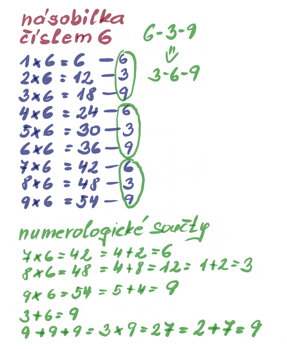 násobilka
číslem 6
6-3-9
⇓
3-6-9
1×6 = 6 – 6
2×6 = 12 – 3
3×6 = 18 – 9
4×6 = 24 – 6
5×6 = 30 – 3
6×6 = 36 – 9
7×6 = 42 – 6
8×6 = 48 – 3
9×6 = 54 – 9
numerologické součty
7×6 = 42 = 4+2 = 6
8×6 = 48 = 4+8 = 12 = 1+2 = 3
9×6 = 54 = 5+4 = 9
3+6 = 9
9+9+9 = 3×9 = 27 = 2+7 = 9